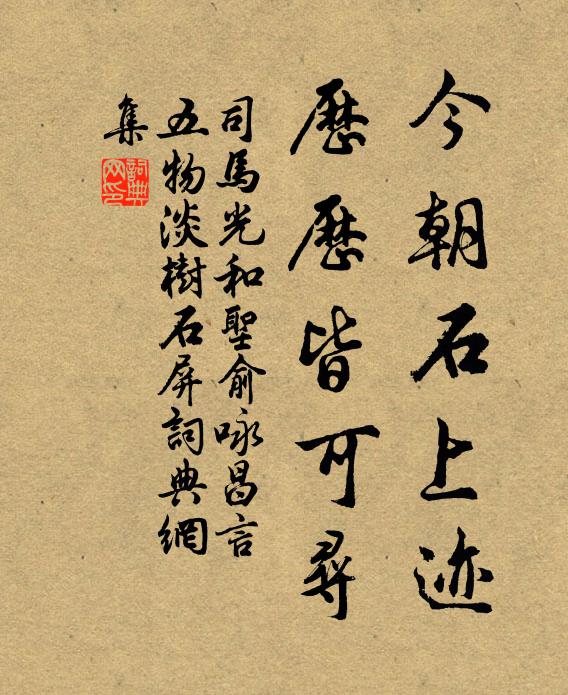 今朝石上迹
歷歷皆可尋
司馬光和聖俞咏昌言
五物淡樹石屏詞典網
集
詞典网印